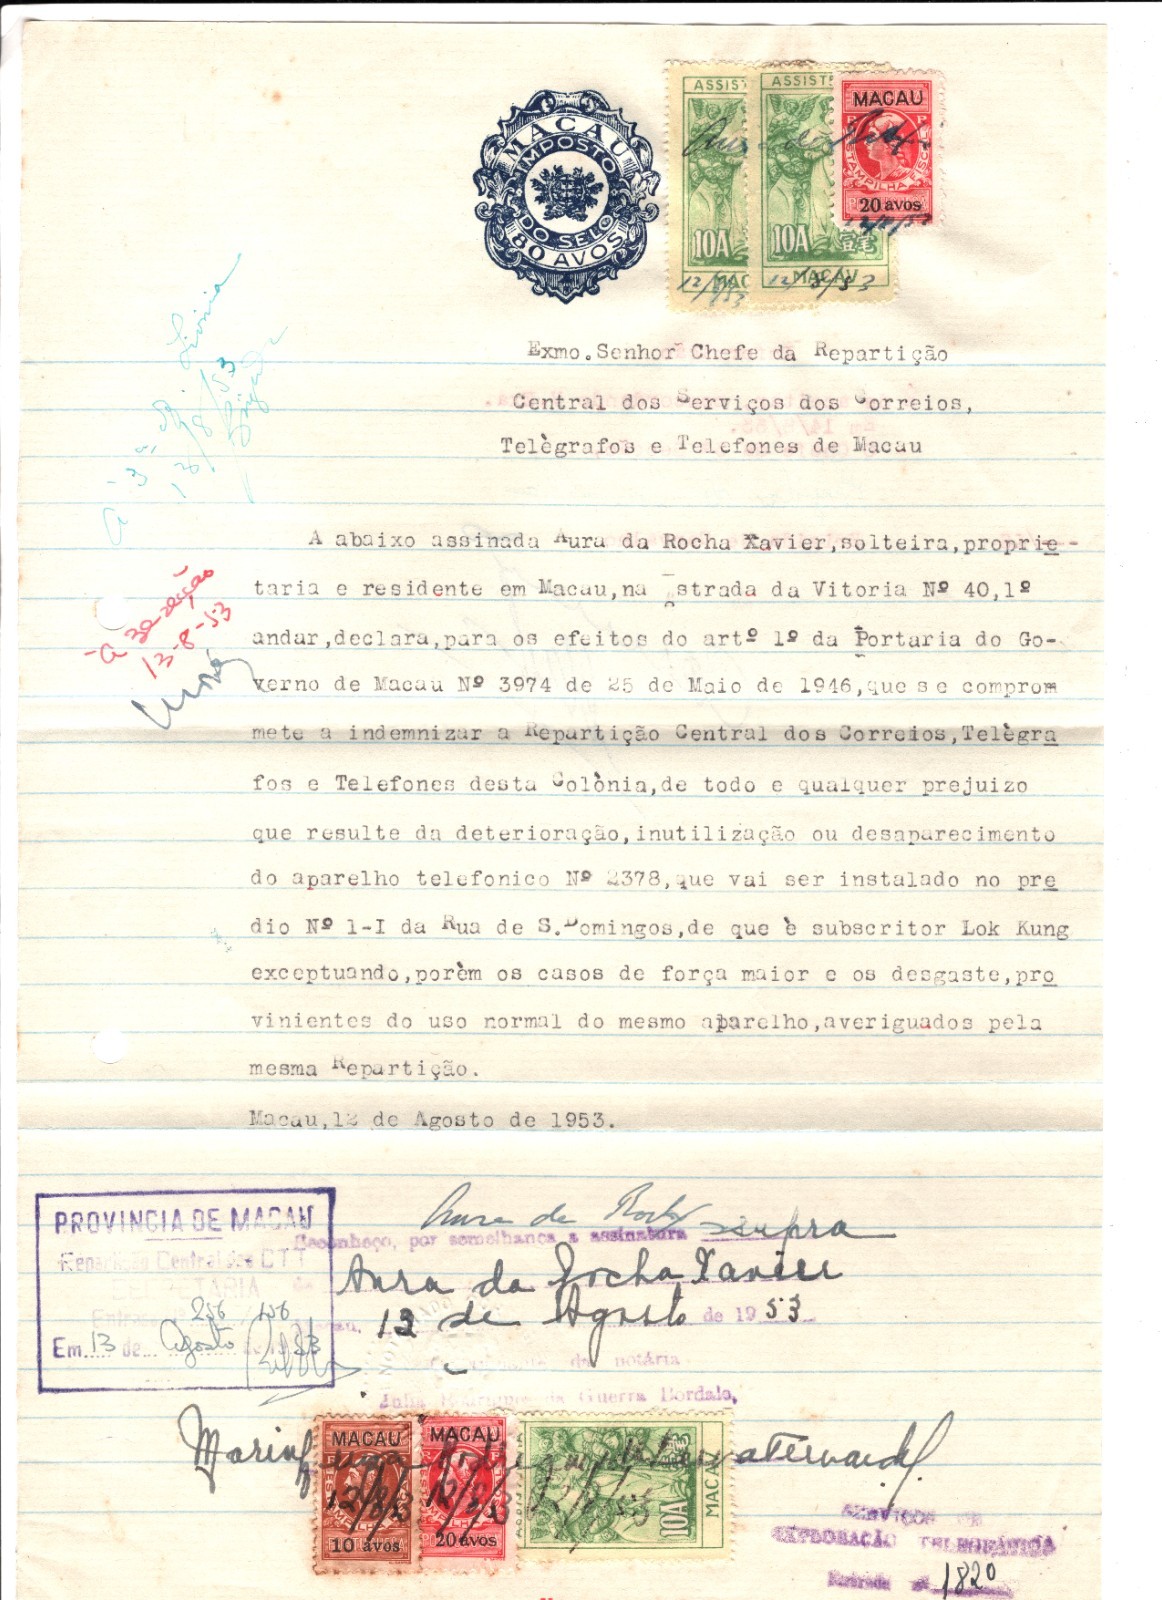 MACAU
IMPOSTO
DO SELO
80 AVOS
ASSIST
10A
MAC
12/8/53
ASSISTE
10A 壹毫
MACAU
12/8/53
MACAU
ESTAMPILHA FISCAL
20 avos
12/8/53
Exmo. Senhor Chefe da Repartição
Central dos Serviços dos Correios,
Telègrafos e Telefones de Macau
À 3ª
13/8/53
À 3ª secção
13-8-53
A abaixo assinada Aura da Rocha Xavier, solteira, proprie-
taria e residente em Macau, na Estrada da Vitoria Nº 40, 1º
andar, declara, para os efeitos do artº 1º da Portaria do Go-
verno de Macau Nº 3974 de 25 de Maio de 1946, que se comprom
mete a indemnizar a Repartição Central dos Correios, Telègra
fos e Telefones desta Colònia, de todo e qualquer prejuizo
que resulte da deterioração, inutilização ou desaparecimento
do aparelho telefonico Nº 2378, que vai ser instalado no pre
dio Nº 1-I da Rua de S. Domingos, de que è subscritor Lok Kung
exceptuando, porèm os casos de força maior e os desgaste, pro
vinientes do uso normal do mesmo aparelho, averiguados pela
mesma Repartição.
Macau, 12 de Agosto de 1953.
PROVINCIA DE MACAU
Repartição Central dos CTT
SECRETARIA
Entrada 256/156
Em 13 de Agosto de 1953
Aura da Rocha
Reconheço, por semelhança a assinatura supra
de Aura da Rocha Xavier
Macau, 12 de Agosto de 1953
da notária
Guerra Bordalo,
MACAU
10 avos
12/8/53
MACAU
20 avos
12/8/53
10A
MACAU
12/8/53
SERVIÇOS DE
EXPLORAÇÃO TELEFÓNICA
Entrada nº 1820